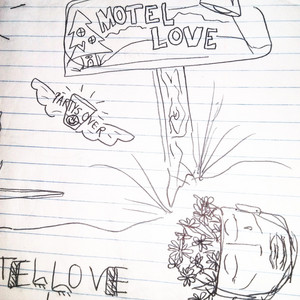 MOTEL
LOVE
PARTYS OVER
TELLOVE